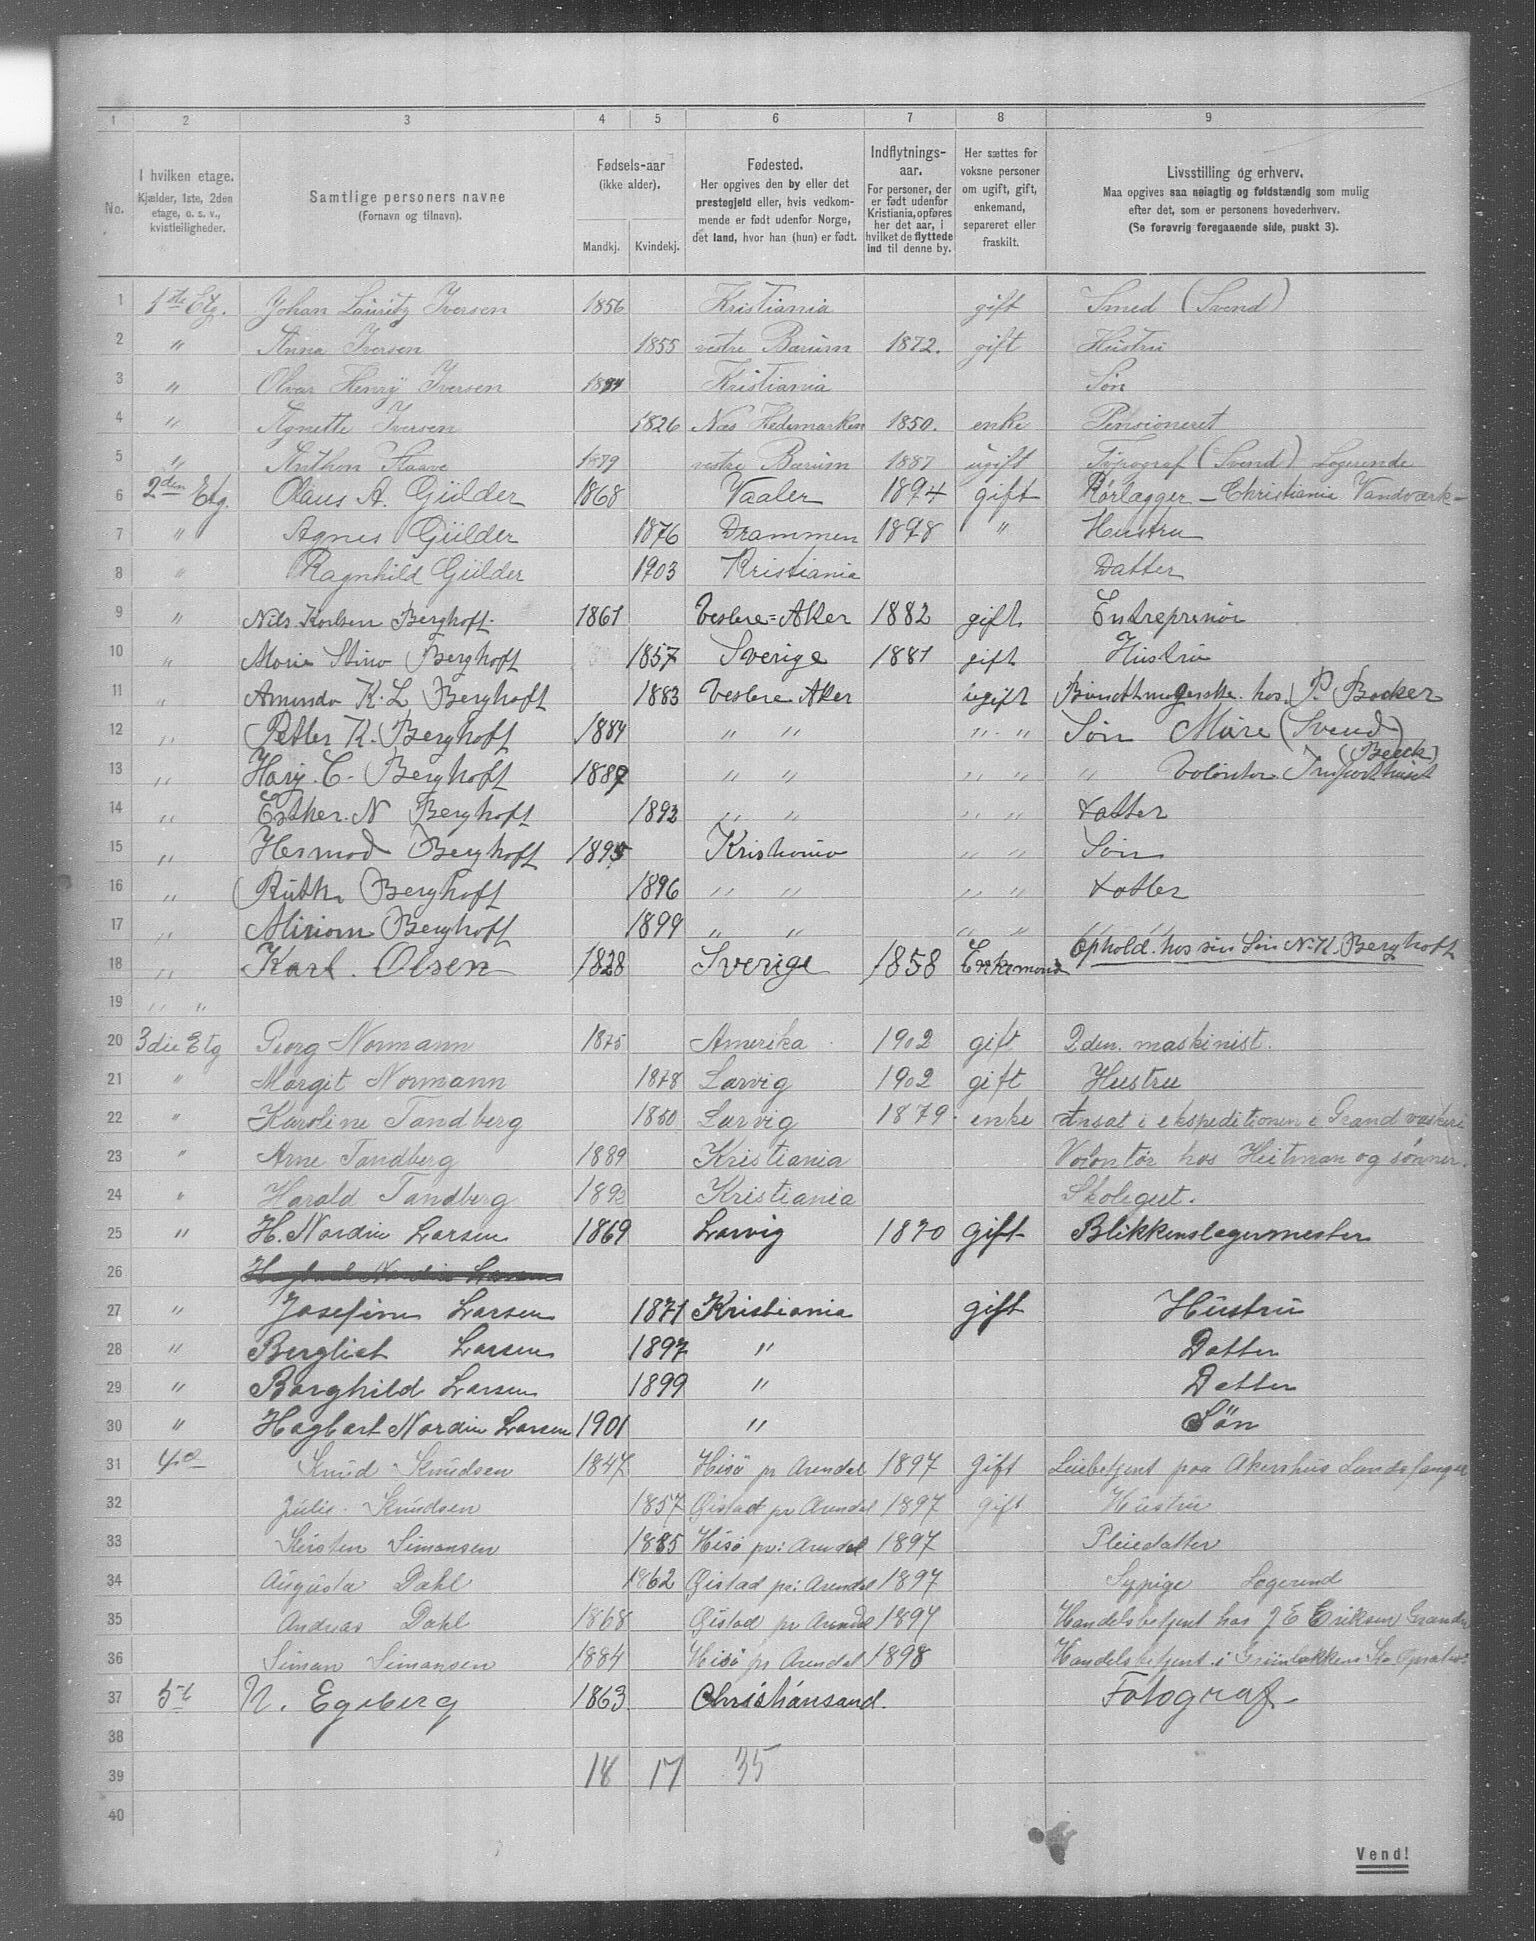 1 2 3 4 5 6 7 8 9
No. | I hvilken etage. Kjælder, 1ste, 2den etage, o. s. v., kvistleiligheder. | Samtlige personers navne (Fornavn og tilnavn). | Fødsels-aar (ikke alder). Mandkj. Kvindekj. | Fødested. Her opgives den by eller det prestegjeld eller, hvis vedkommende er født udenfor Norge, det land, hvor han (hun) er født. | Indflytnings-aar. For personer, der er født udenfor Kristiania, opføres her det aar, i hvilket de flyttede ind til denne by. | Her sættes for voksne personer om ugift, gift, enkemand, separeret eller fraskilt. | Livsstilling og erhverv. Maa opgives saa nøiagtig og fuldstændig som mulig efter det, som er personens hovederhverv. (Se forøvrig foregaaende side, punkt 3).
1 1ste Etg. Johan Lauritz Iversen 1856 Kristiania gift Smed (Svend)
2 " Anna Iversen 1855 vestre Bærum 1872. gift Hustru
3 " Olvar Henry Iversen Kristiania Søn
4 " Agnette Iversen 1826 Næs Hedemarken 1850. enke Pensioneret
5 " Anthon Flaave 1879 vestre Bærum 1887 ugift Typograf (Svend) Logerende
6 2den Etg. Olaus A. Gülder 1868 Vaaler 1894 gift Rørlægger - Christiania Vandværk-
7 " Agnes Gülder 1876 Drammen 1898 " Hustru
8 " Ragnhild Gülder 1903 Kristiania Datter
9 " Nils Karlsen Berghoft. 1861 Vestre=Aker 1882 gift. Entreprenør
10 " Marie Stina Berghoft 1857 Sverige 1881 gift Hustru
11 " Amanda K. L Berghoft 1883 Vestre Aker ugift hos. P. Backer
12 " Petter K. Berghoft 1884 " " " " Søn Mürer (Svend)
13 " Harj. C. Berghoft 1887 " " " " " Volontør Importhuset (Beck)
14 " Esther. N Berghoft 1892 " " " " Datter
15 " Hermod Berghoft 1895 Kristiania " " Søn
16 " Ruth Berghoft 1896 " " " " Datter
17 " Miriam Berghoft 1899 " " " " " "
18 " Karl. Olsen 1828 Sverige 1858 Enkemand Ophold. hos sin Søn N. K. Berghoft
19 " "
20 3die Etg Georg Normann 1875 Amerika 1902 gift 2den. maskinist.
21 " Margit Normann 1878 Larvig 1902 gift Hustru
22 " Karoline Tandberg 1850 Larvig 1879. enke Ansat i ekspeditionen i Grand vaskeri
23 " Arne Tandberg 1889 Kristiania Volontør hos Heitman og sønner.
24 " Harald Tandberg 1892 Kristiania Skolegut.
25 " H. Nordin Larsen 1869 Larvig 1870 gift Blikkenslagermester
26 Hagbart Nordin Larsen
27 " Josefine Larsen 1871 Kristiania gift Hustru
28 " Bergliet Larsen 1897 " Datter
29 " Borghild Larsen 1899 " Datter
30 " Hagbart Nordin Larsen 1901 " Søn
31 4de Knud Knudsen 1847 Hisø pr Arendal 1897 gift paa Akershus Landsfængsel
32 Julie. Knudsen 1857 Øistad pr Arendal 1897 gift Hustru
33 Kirsten Simonsen 1885 Hisø pr: Arendal 1897 Pleiedatter
34 Augusta Dahl 1862 Øistad pr: Arendal 1897 Sypige Logerend
35 Andreas Dahl 1868 Øistad pr Arendal 1897 Handelsbetjent hos J E Eriksen
36 Simon Simonsen 1884 Hisø pr Arendal 1898 Handelsbetjent i Grünløkkens
37 5te N. Egeberg 1863 Christiansand. Fotograf-
38
39 18 17 35
40
Vend!